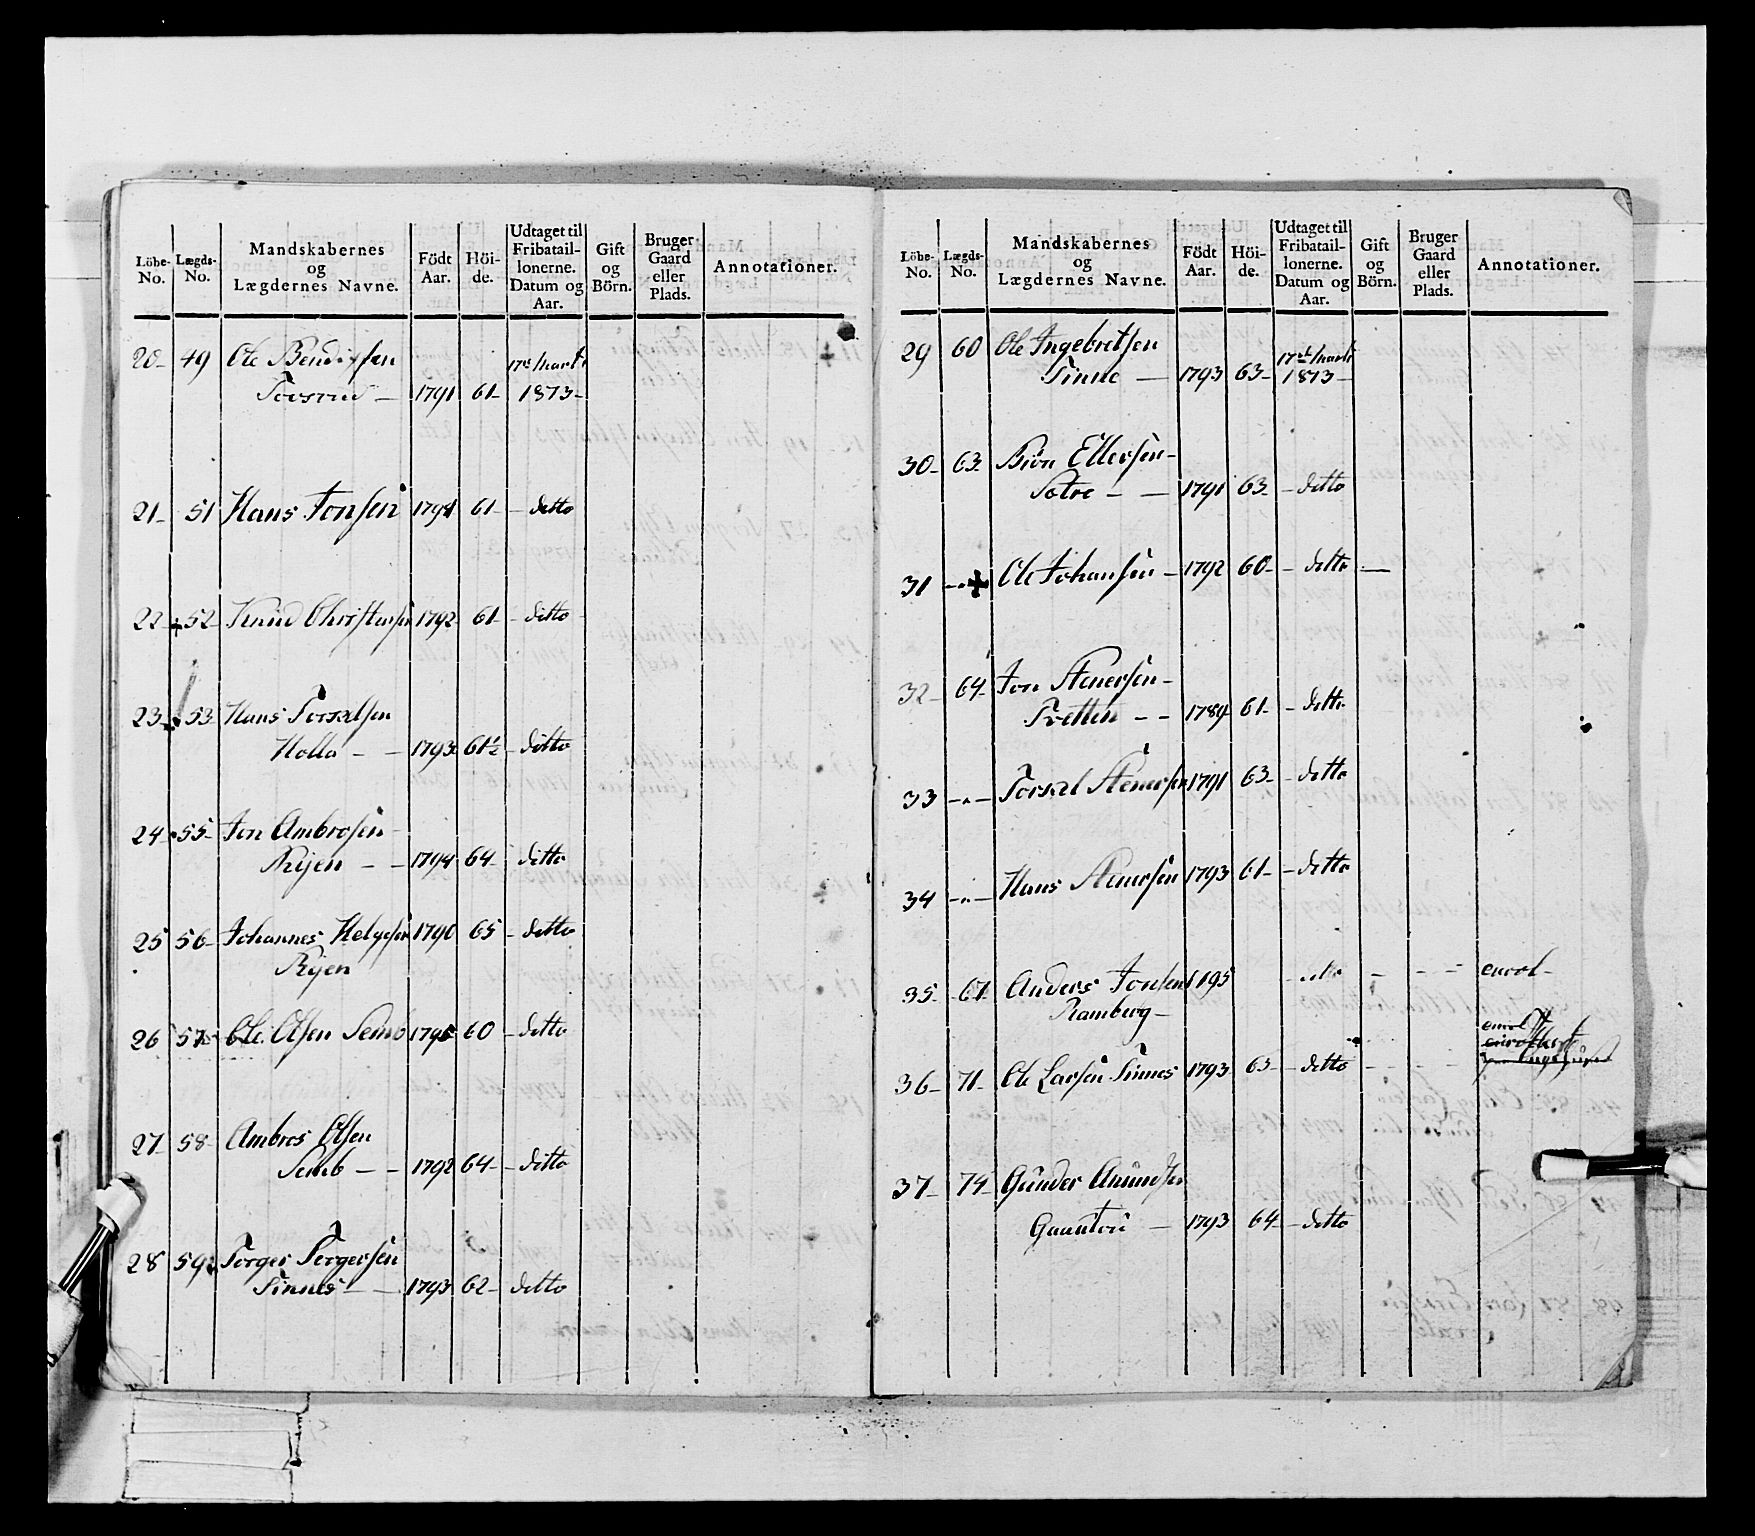 Löbe-No. Lægds-No. Mandskabernes og Lægdernes Navne. Födt Aar. Höi-de. Udtaget til Fribatail-lonerne. Datum og Aar. Gift og Börn. Bruger Gaard eller Plads. Annotationer.
20- 49 Ole Bendixsen 17de Marti
1791 61- 1813-
21- 51 Hans Jonsen 1794 61 - detto
22- 52- Knud Christensen 1792 61- - ditto
23- 53- Hans Torsælsen
Holla - - 1793 61½ - ditto
24- 55- Jon Ambrosen
Rijen - - 1794 64- ditto
25 56- Johannes Helgesen 1790 65 - detto
Rijen
26 57- Ole Olsen Semb 1795 60 - detto
27- 58- Ambros Olsen
Semb - - 1792 64- - ditto
28 59 Torger Torgersen
Tinnes - - 1793 62- detto
Löbe-No. Lægds-No. Mandskabernes og Lægdernes Navne. Födt Aar. Höi-de. Udtaget til Fribatail-lonerne. Datum og Aar. Gift og Börn. Bruger Gaard eller Plads. Annotationer.
29 60 Ole Ingebretsen 17de Marti
Tinne - 1793 63- 1813-
30- 63 Biön Ellevsen-
Sætre - - 1791 63- - detto
31 -"- Ole Johansen - 1792 60- - detto -
32- 64- Jon Stenersen-
Tvetten - - 1789 61- - detto
33 -"- Torsæl Stenersen 1791 63- - detto
34 -"- Hans Stenersen 1793 61- - detto
35- 67 Anders Jonsen 1795 - detto - - - enrol-
Ramberg-
enrol
36- 71- Ole Larsen Tinnes 1793 63- - detto - - -
37- 74- Gunder Amundsen
1793 64- - detto